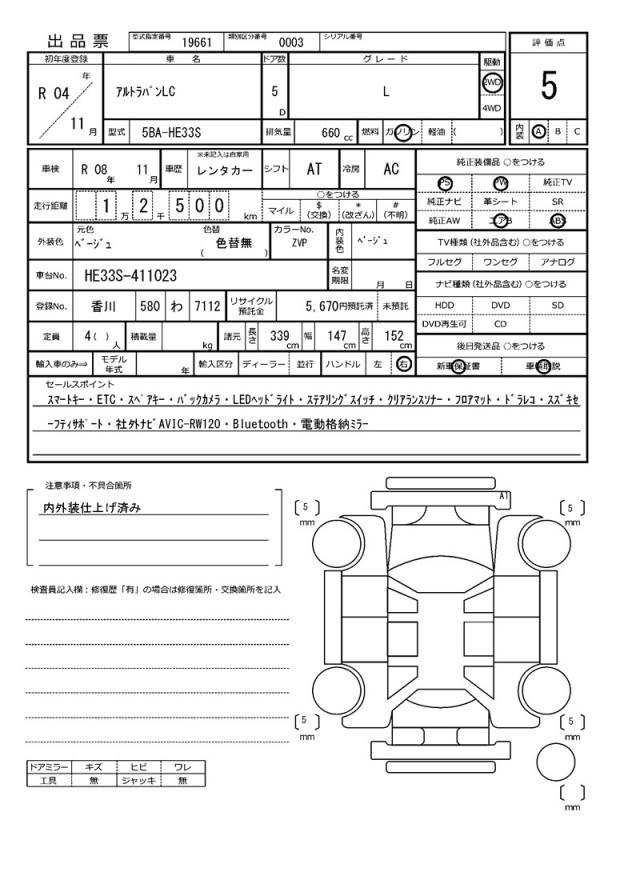 出品票 型式指定番号 19661 類別区分番号 0003 シリアル番号
評価点
5
内装 A B C
初年度登録 車名 ドア数 グレード 駆動
R 04 年 11 月 アルトラパンLC 5 D L 2WD 4WD
型式 5BA-HE33S 排気量 660 cc 燃料 ガソリン 軽油 ( )
車検 R 08 年 11 月 車歴 ※未記入は自家用 レンタカー シフト AT 冷房 AC
走行距離 1 万 2 千 5 0 0 km
○をつける
マイル $(交換) *(改ざん) #(不明)
外装色 元色 ベージュ 色替 色替無 ( ) カラーNo. ZVP 内装色 ベージュ
車台No. HE33S-411023 名変期限 月 日
登録No. 香川 580 わ 7112 リサイクル預託金 5,670円預託済 未預託
定員 4( ) 人 積載量 kg 諸元 長さ 339 cm 幅 147 cm 高さ 152 cm
輸入車のみ⇒ モデル年式 年 輸入区分 ディーラー 並行 ハンドル 左 右
純正装備品 ○をつける
PS PW 純正TV
純正ナビ 革シート SR
純正AW エアB ABS
TV種類(社外品含む)○をつける
フルセグ ワンセグ アナログ
ナビ種類(社外品含む)○をつける
HDD DVD SD
DVD再生可 CD
後日発送品 ○をつける
新車保証書 車輌取説
セールスポイント
スマートキー・ETC・スペアキー・バックカメラ・LEDヘッドライト・ステアリングスイッチ・クリアランスソナー・フロアマット・ドラレコ・スズキセ
ーフティサポート・社外ナビAVIC-RW120・Bluetooth・電動格納ミラー
注意事項・不具合箇所
内外装仕上げ済み
検査員記入欄:修復歴「有」の場合は修復箇所・交換箇所を記入
ドアミラー キズ ヒビ ワレ
工具 無 ジャッキ 無
AT
[ 5 ] mm
[ 5 ] mm
[ 5 ] mm
[ 5 ] mm
[ ] mm